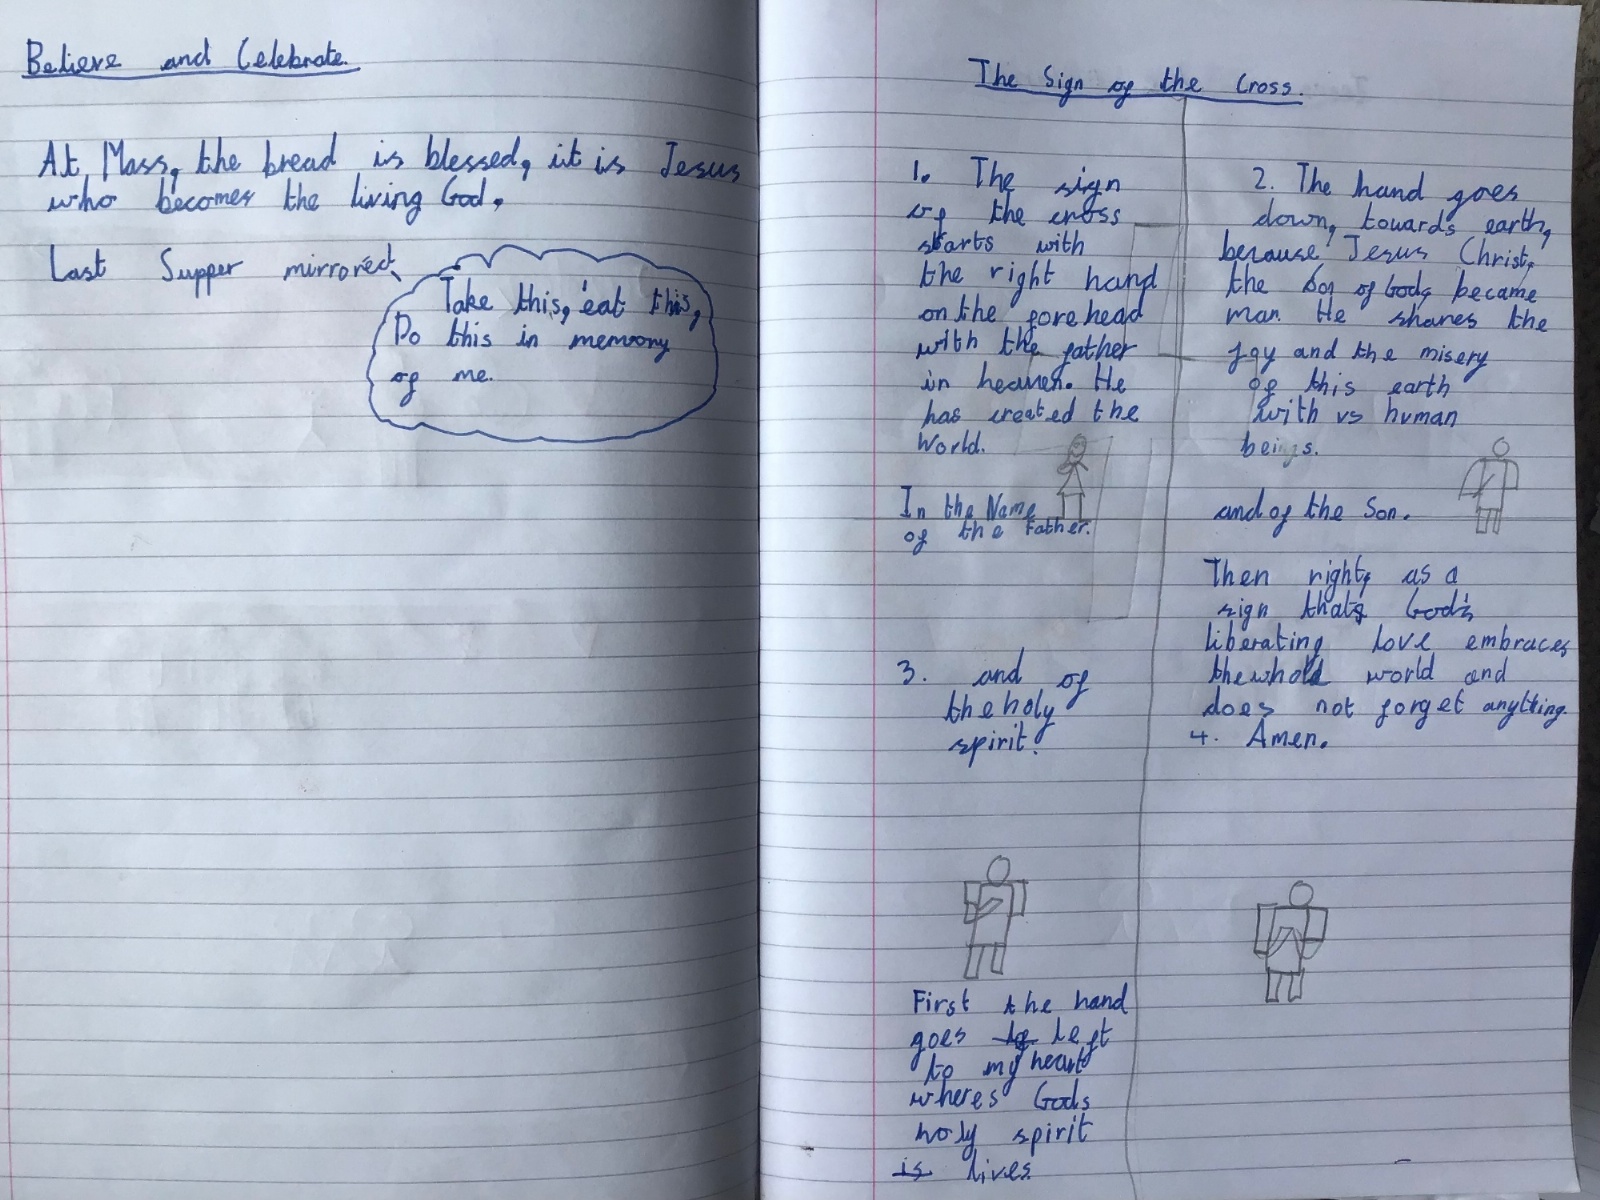 Believe and Celebrate.
At Mass, the bread is blessed, it is Jesus
who becomes the living God.
Last Supper mirrored
Take this, eat this,
Do this in memory
of me.
The Sign of the Cross.
1. The sign
of the cross
starts with
the right hand
on the forehead
with the father
in heaven. He
has created the
World.
In the Name
of the Father.
2. The hand goes
down, towards earth,
because Jesus Christ,
the Son of God, became
man. He shares the
joy and the misery
of this earth
with us human
beings.
and of the Son.
3. and of
the holy
spirit.
First the hand
goes to left
to my heart
wheres Gods
holy spirit
is lives
Then right, as a
sign that, God's
liberating love embraces
the whole world and
does not forget anything.
4. Amen.